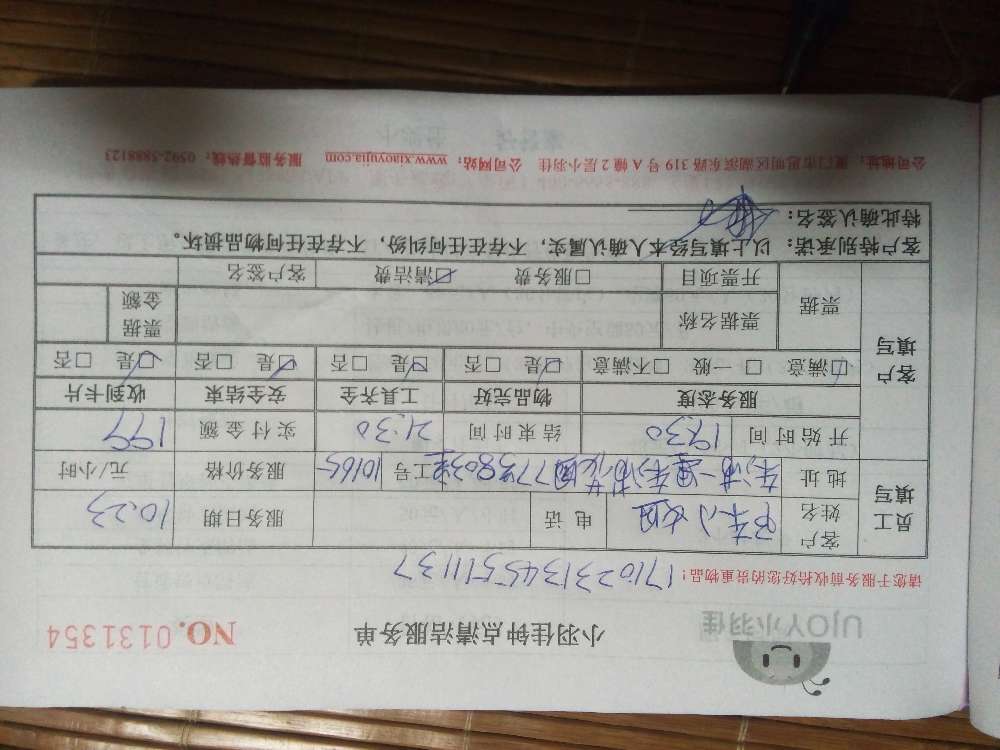 UJOY小羽佳
小羽佳钟点清洁服务单
NO.0131354
请您于服务前收拾好您的贵重物品!
171023134555111137
员工填写
客户姓名 女士 电话 服务日期 10.23
地址 号 工号 10165 服务价格 元/小时
开始时间 19:30 结束时间 21:30 实付金额 199
客户填写
服务态度 物品完好 工具齐全 安全结束 收到卡片
☑满意 □一般 □不满意 ☑是 □否 ☑是 □否 ☑是 □否 ☑是 □否
票据 票据名称 票据金额
开票项目 □服务费 ☑清洁费 客户签名
客户特别承诺:以上填写经本人确认属实,不存在任何纠纷,不存在任何物品损坏。
特此确认签名:
公司地址:厦门市思明区湖滨东路 319 号 A 幢 2 层小羽佳 公司网站:www.xiaoyujia.com 服务监督热线:0592-5888123